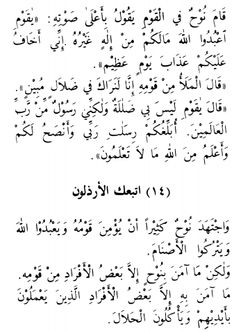 قَامَ نُوْحٌ فِي الْقَوْمِ يَقُوْلُ بِأَعْلَى صَوْتِهِ: «يٰقَوْمِ
اعْبُدُوْا اللهَ مَالَكُمْ مِنْ إِلٰهٍ غَيْرُهُ إِنِّي أَخَافُ
عَلَيْكُمْ عَذَابَ يَوْمٍ عَظِيْمٍ».
«قَالَ الْمَلَأُ مِنْ قَوْمِهِ إِنَّا لَنَرَاكَ فِي ضَلَالٍ مُبِيْنٍ».
«قَالَ يٰقَوْمِ لَيْسَ بِي ضَلٰلَةٌ وَلٰكِنِّي رَسُوْلٌ مِّنْ رَّبِّ
الْعَالَمِيْنَ. أُبَلِّغُكُمْ رِسٰلٰتِ رَبِّي وَأَنْصَحُ لَكُمْ
وَأَعْلَمُ مِنَ اللهِ مَا لَا تَعْلَمُوْنَ».
(١٤) اتبعك الأرذلون
وَاجْتَهَدَ نُوْحٌ كَثِيْرًا أَنْ يُؤْمِنَ قَوْمُهُ وَيَعْبُدُوْا اللهَ
وَيَتْرُكُوْا الْأَصْنَامَ.
وَلٰكِنْ مَا آمَنَ بِنُوْحٍ إِلَّا بَعْضُ الْأَفْرَادِ مِنْ قَوْمِهِ.
مَا آمَنَ بِهِ إِلَّا بَعْضُ الْأَفْرَادِ الَّذِيْنَ يَعْمَلُوْنَ
بِأَيْدِيْهِمْ وَيَأْكُلُوْنَ الْحَلَالَ.